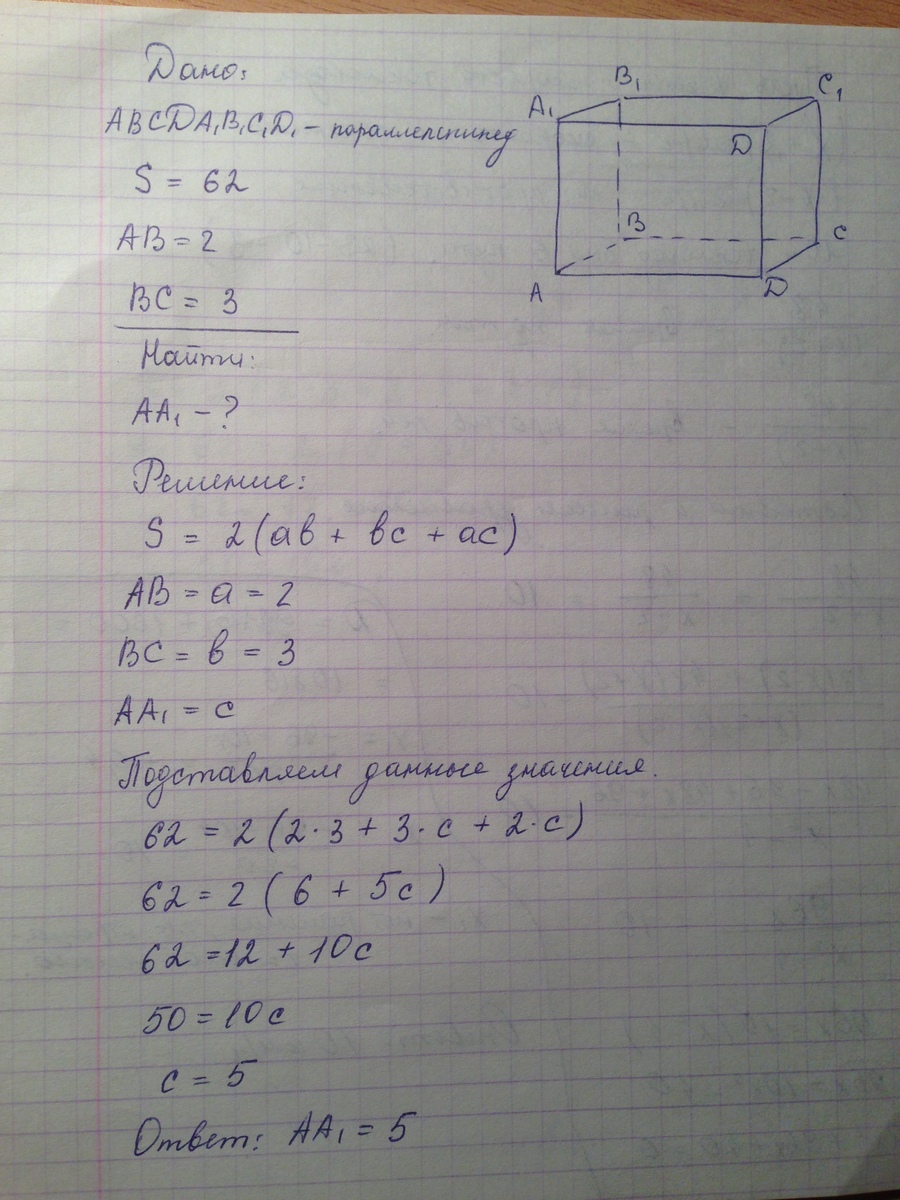 Дано:
ABCDA₁B₁C₁D₁ - параллелепипед
S = 62
AB = 2
BC = 3
Найти:
AA₁ - ?
B₁
C₁
A₁
D
B
C
A
D
Решение:
S = 2(ав + вс + ас)
AB = a = 2
BC = в = 3
AA₁ = c
Подставляем данные значения.
62 = 2(2·3 + 3·с + 2·с)
62 = 2(6 + 5с)
62 = 12 + 10с
50 = 10с
с = 5
Ответ: AA₁ = 5